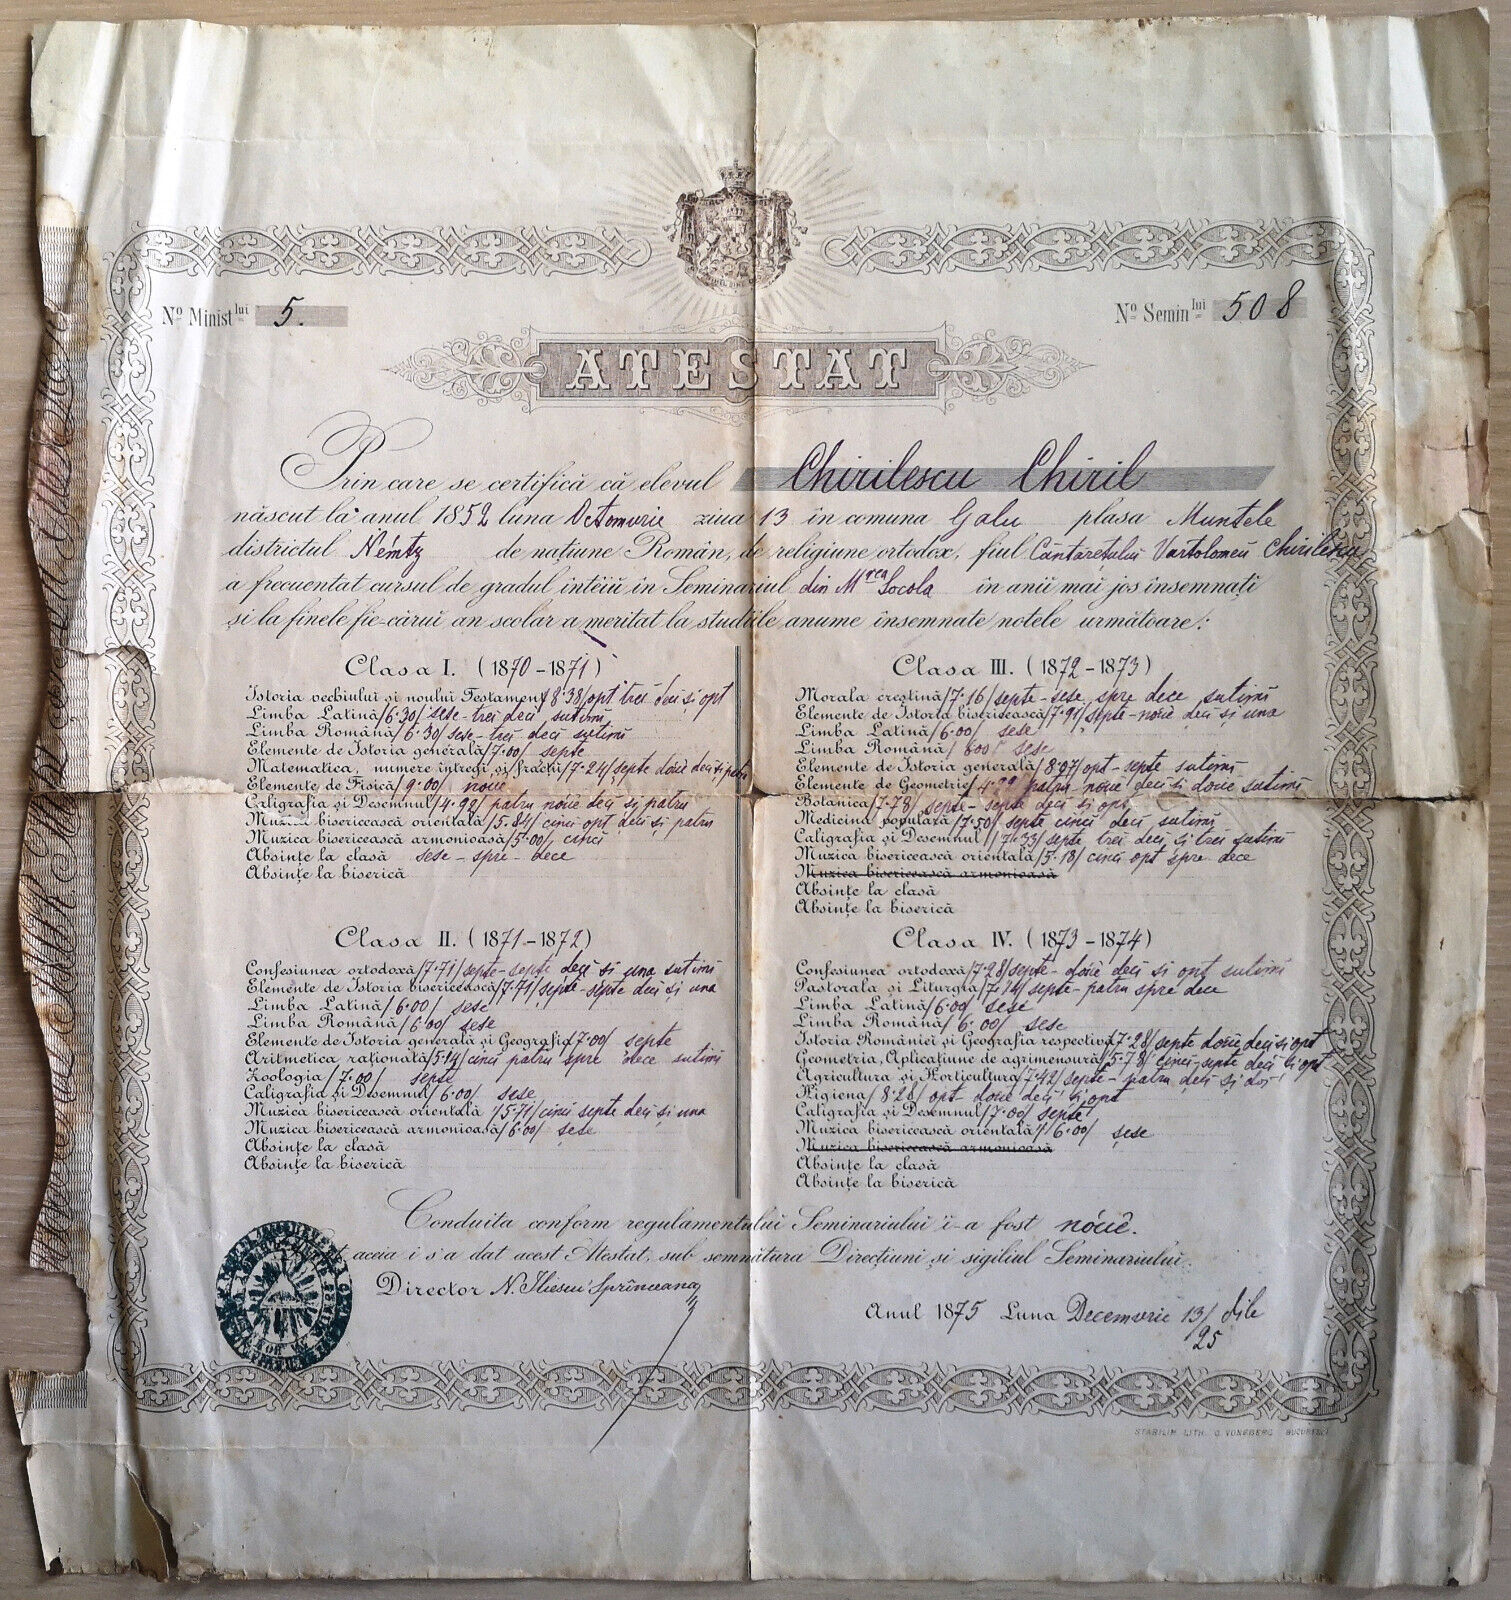 No Minist lui 5.
No Semin lui 508
ATESTAT
Prin care se certifică că elevul Chirilescu Chiril
născut la anul 1852 luna Octomvrie ziua 13 în comuna Galu plasa Muntele
districtul Némtz de națiune Român, de religiune ortodox, fiul Cântarețului Vartolomeu Chirilescu
a frecuentat cursul de gradul intêiŭ in Seminariul din Mrea Socola in anii mai jos însemnați
și la finele fie-cărui an scolar a meritat la studiile anume însemnate notele următoare:
Clasa I. (1870-1871)
Istoria vechiului și noului Testament/8.38/opt trei deci și opt
Limba Latină/6.30/șese-trei deci sutimi
Limba Română/6.30/șese-trei deci sutimi
Elemente de Istoria generală/7.00/ șepte
Matematica, numere întregi și fracții/7.24/șepte doue deci și patru
Elemente de Fisică/9.00/ noue
Caligrafia și Desemnul/4.92/ patru noue deci și patru
Muzica bisericească orientală/5.84/cinci opt deci și patru
Muzica bisericească armonioasă/5.00/ cinci
Absințe la clasă șese-spre-dece
Absințe la biserică
Clasa II. (1871-1872)
Confesiunea ortodoxă/7.71/șepte-șepte deci si una sutimi
Elemente de Istoria bisericească/7.71/șepte-șepte deci și una
Limba Latină/6.00/ șese
Limba Română/6.00/ șese
Elemente de Istoria generală și Geografia/7.00/ șepte
Aritmetica rațională/5.14/cinci patru spre dece sutimi
Zoologia/7.00/ șepte
Caligrafia și Desemnul/6.00/ șese
Muzica bisericească orientală/5.71/cinci șepte deci și una
Muzica bisericească armonioasă/6.00/ șese
Absințe la clasă
Absințe la biserică
Clasa III. (1872-1873)
Morala creștină/7.16/septe-sese spre dece sutimi
Elemente de Istoria bisericească/7.91/șepte-noue deci și una
Limba Latină/6.00/ șese
Limba Română/6.00/ șese
Elemente de Istoria generală/8.07/opt-șepte sutimi
Elemente de Geometrie/4.92/patru noue deci si doue sutimi
Botanica/7.78/ șepte-șepte deci și opt
Medicina populară/7.50/ șepte cinci deci sutimi
Caligrafia și Desemnul/7.33/șepte trei deci și trei sutimi
Muzica bisericească orientală/5.18/ cinci opt spre dece
Muzica bisericească armonioasă
Absințe la clasă
Absințe la biserică
Clasa IV. (1873-1874)
Confesiunea ortodoxă/7.28/șepte-doue deci si opt sutimi
Pastorala și Liturgia/7.14/șepte-patru spre dece
Limba Latină/6.00/ șese
Limba Română/6.00/ șese
Istoria României și Geografia respectivă/7.28/șepte doue deci și opt
Geometria, Aplicațiune de agrimensură/5.78/cinci șepte deci și opt
Agricultura și Horticultura/7.42/șepte-patru deci și doi
Higiena/8.28/ opt doue deci și opt
Caligrafia și Desemnul/7.00/ șepte
Muzica bisericească orientală/6.00/ șese
Muzica bisericească armonioasă
Absințe la clasă
Absințe la biserică
Conduita conform regulamentului Seminariului i-a fost nóue.
aceia i s'a dat acest Atestat, sub semnătura Direcțiunii și sigiliul Seminariului.
Director N. Iliescu Sprînceană
Anul 1875 Luna Decemvrie 13/25 dile
STABILIM. LITH. G. VONEBERG BUCURESCI